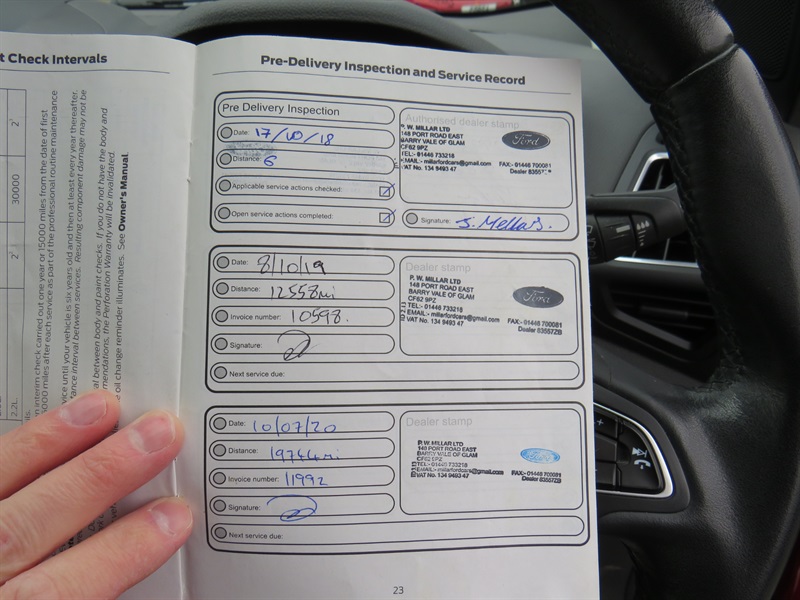 t Check Intervals
2`
30000
2`
2.2L
n interim check carried out one year or 15000 miles from the date of first
5000 miles after each service as part of the professional routine maintenance
vice until your vehicle is six years old and then at least every year thereafter.
tance interval between services. Resulting component damage may not be
al between body and paint checks. If you do not have the body and
mendations, the Perforation Warranty will be invalidated.
e oil change reminder illuminates. See Owner's Manual.
Pre-Delivery Inspection and Service Record
Pre Delivery Inspection
Date: 17/10/18
Distance: 6
Applicable service actions checked:
Open service actions completed:
Authorised dealer stamp
P. W. MILLAR LTD
148 PORT ROAD EAST
BARRY VALE OF GLAM
CF62 9PZ
TEL:- 01446 733218
EMAIL:- millarfordcars@gmail.com
VAT No. 134 9493 47
Ford
FAX:- 01446 700081
Dealer
Signature:
Date: 8/10/19
Distance: 12558mi
Invoice number: 10598.
Signature:
Next service due:
Dealer stamp
P. W. MILLAR LTD
148 PORT ROAD EAST
BARRY VALE OF GLAM
CF62 9PZ
TEL:- 01446 733218
EMAIL:- millarfordcars@gmail.com
VAT No. 134 9493 47
Ford
FAX:- 01446 700081
Dealer 83557ZB
Date: 10/07/20
Distance: 19744mi
Invoice number: 11992
Signature:
Next service due:
Dealer stamp
P. W. MILLAR LTD
148 PORT ROAD EAST
BARRY VALE OF GLAM
CF62 9PZ
TEL:- 01446 733218
EMAIL:- millarfordcars@gmail.com
VAT No. 134 9493 47
Ford
FAX:- 01446 700081
Dealer 83557ZB
23